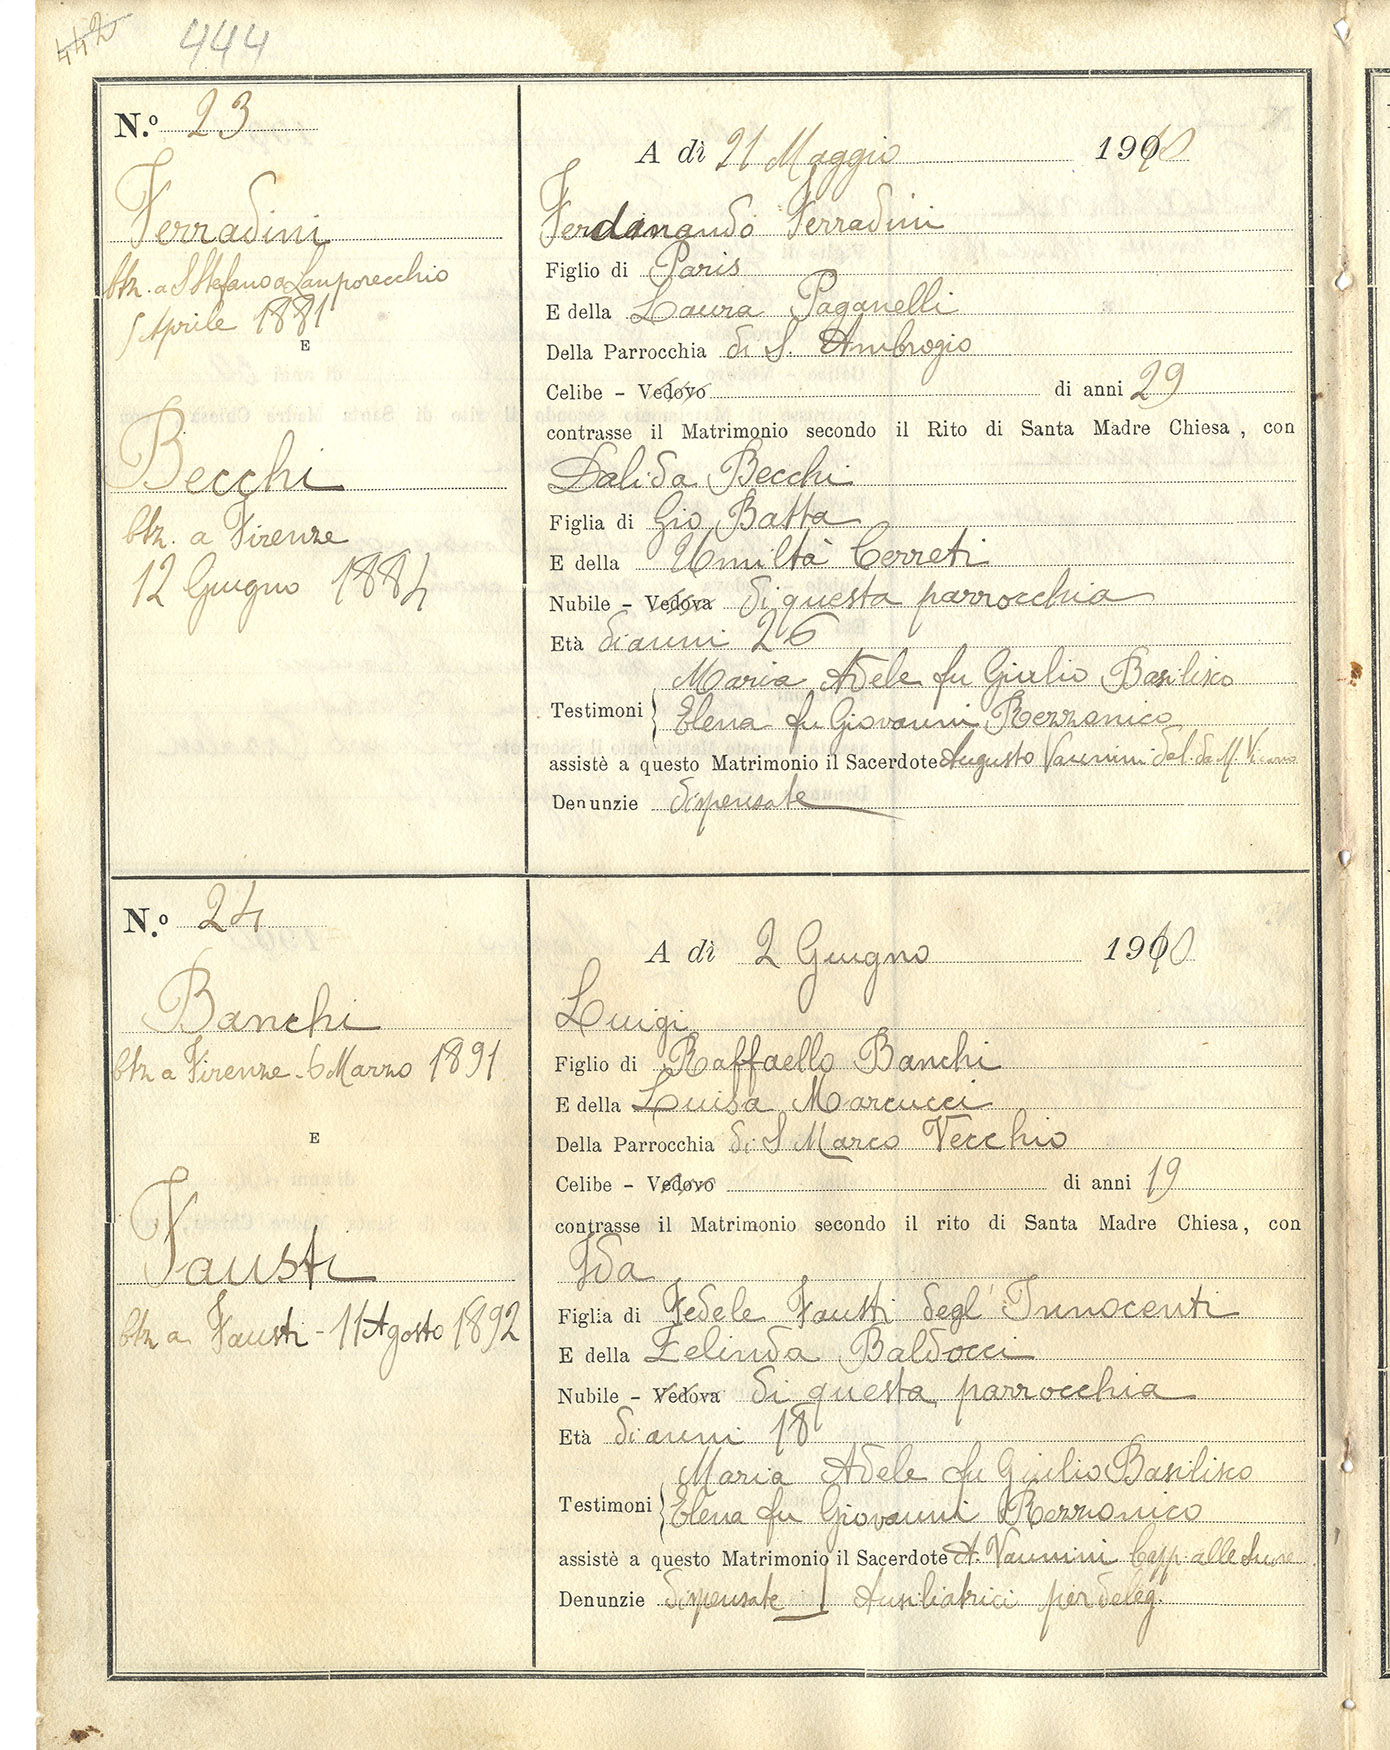 442 444
N.º 23
Ferradini
btz. a S Stefano a Lamporecchio
5 Aprile 1881
E
Becchi
btz. a Firenze
12 Giugno 1884
A dì 21 Maggio 1910
Ferdinando Ferradini
Figlio di Paris
E della Laura Paganelli
Della Parrocchia di S. Ambrogio
Celibe – Vedovo di anni 29
contrasse il Matrimonio secondo il Rito di Santa Madre Chiesa, con
Dalida Becchi
Figlia di Gio Batta
E della Umiltà Cerreti
Nubile – Vedova di questa parrocchia
Età di anni 26
Maria Adele fu Giulio Basilisco
Testimoni
Elena fu Giovanni Rezzonico
assistè a questo Matrimonio il Sacerdote Augusto Vannini del. da M. Vicario
Denunzie dispensate
N.º 24
Banchi
btz a Firenze - 6 Marzo 1891
E
Fausti
btz a Fausti - 11 Agosto 1892
A dì 2 Giugno 1910
Luigi
Figlio di Raffaello Banchi
E della Luisa Marcucci
Della Parrocchia di S Marco Vecchio
Celibe – Vedovo di anni 19
contrasse il Matrimonio secondo il rito di Santa Madre Chiesa, con
Ida
Figlia di Fedele Fausti degl' Innocenti
E della Zelinda Baldocci
Nubile – Vedova di questa parrocchia
Età di anni 18
Maria Adele fu Giulio Basilisco
Testimoni
Elena fu Giovanni Rezzonico
assistè a questo Matrimonio il Sacerdote A. Vannini Capp. alle Suore
Denunzie dispensate Ausiliatrici per deleg.